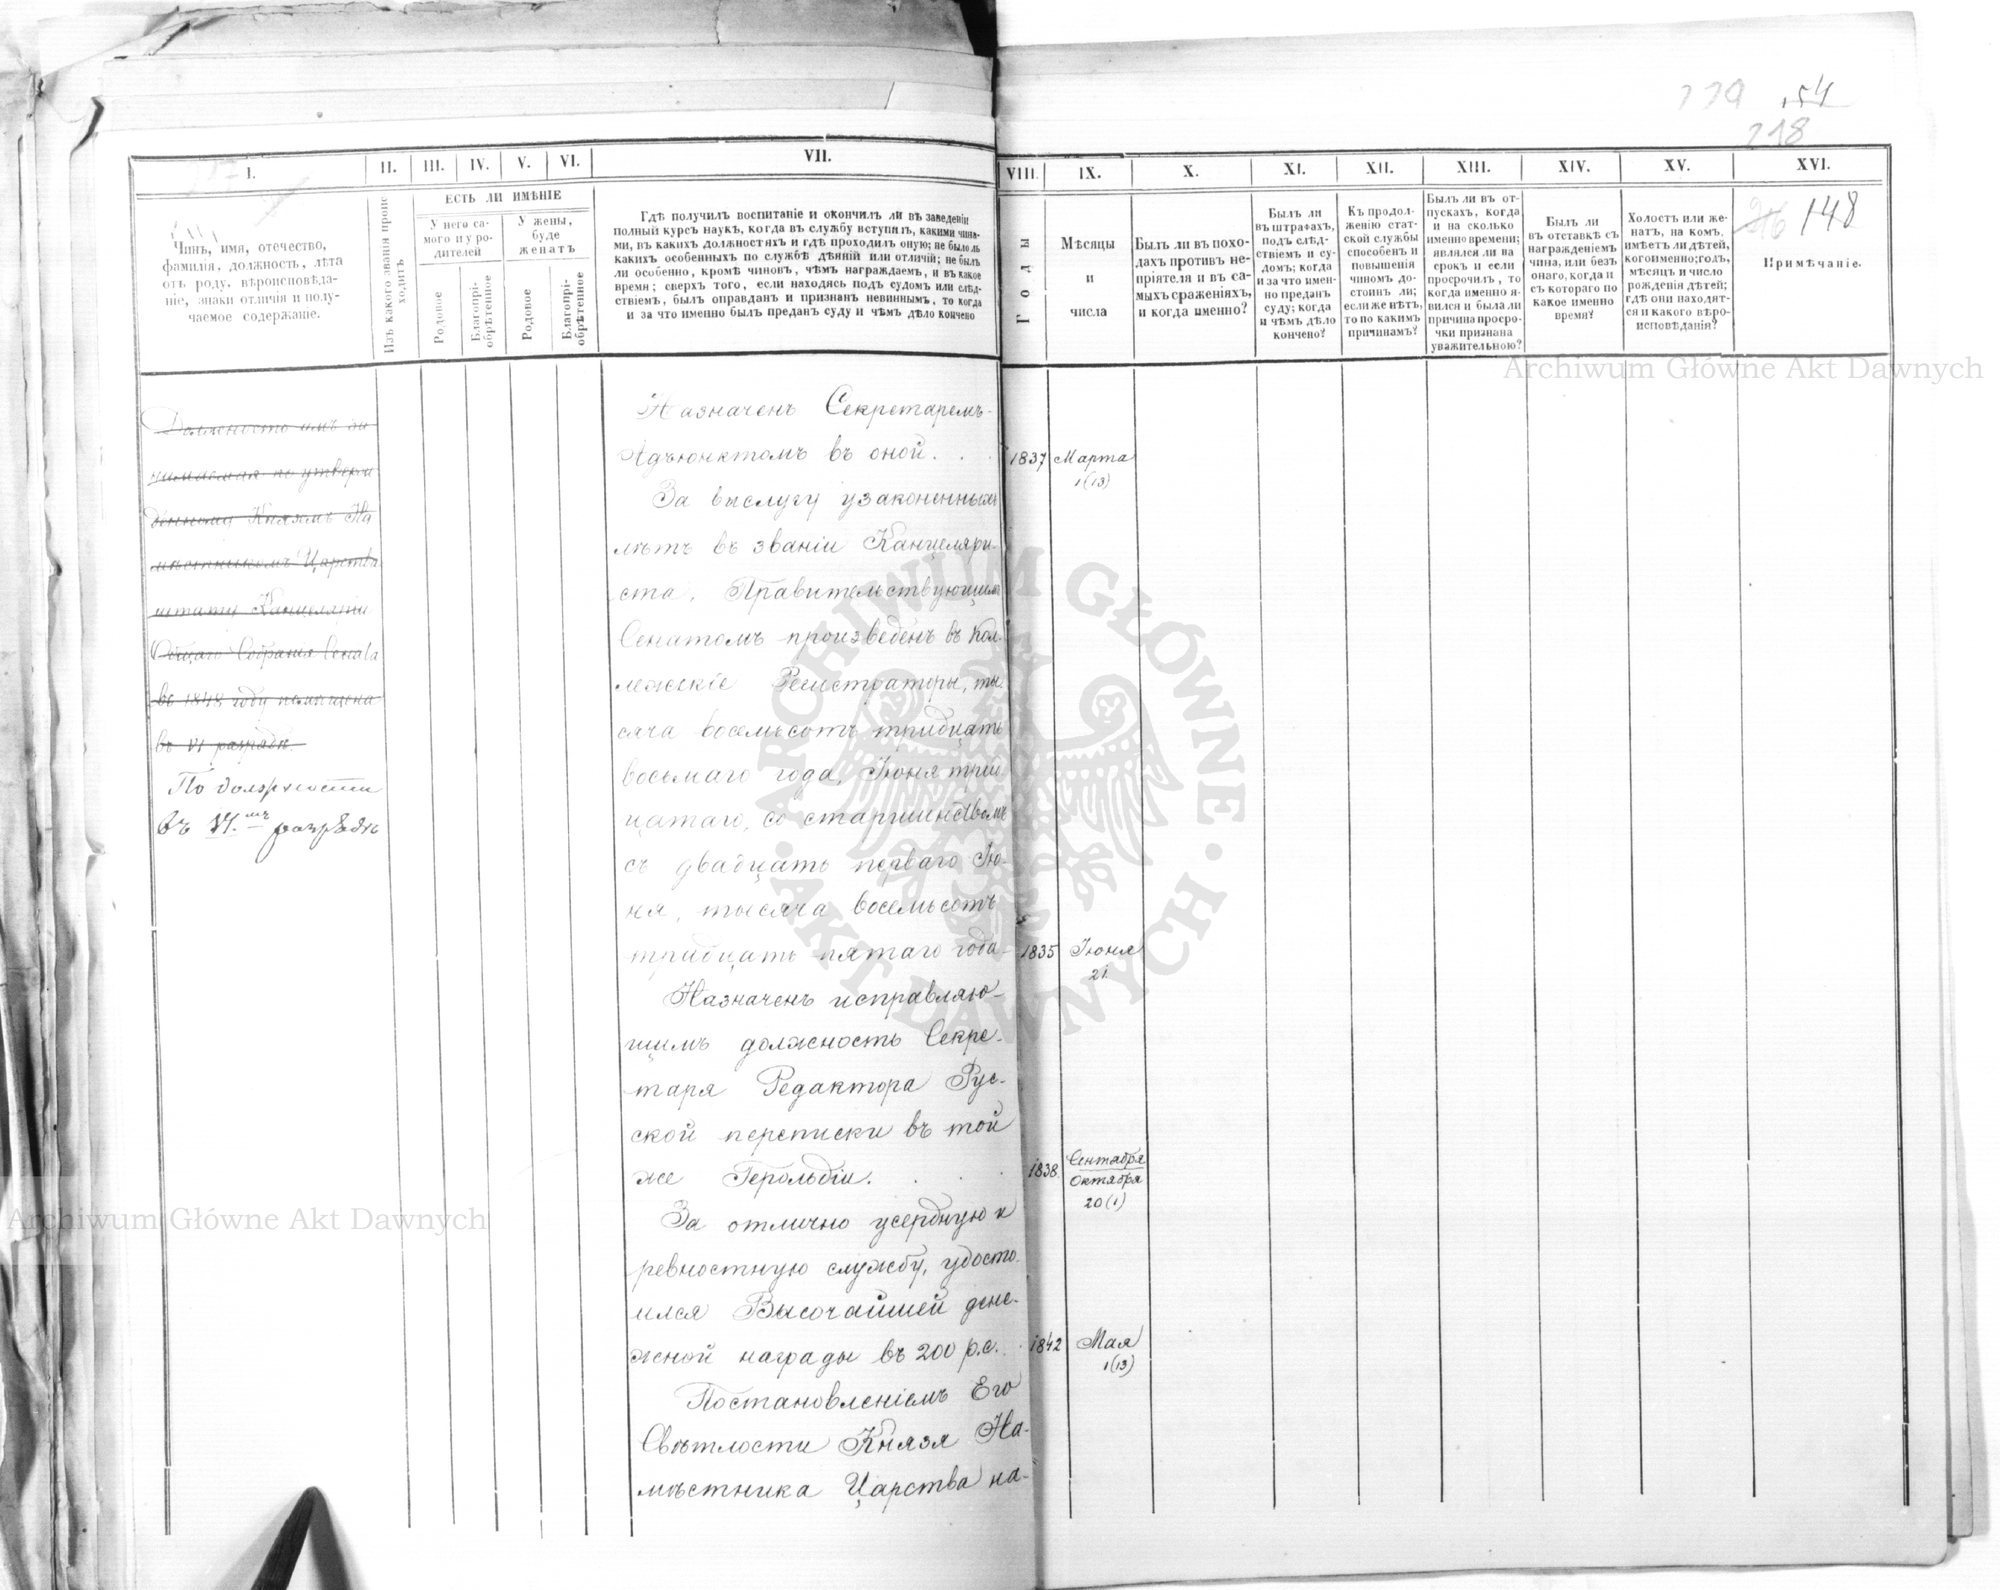 154
218
I.
II.
III.
IV.
V.
VI.
VII.
VIII.
IX.
X.
XI.
XII.
XIII.
XIV.
XV.
XVI.
Чинъ, имя, отечество,
фамилія, должность, лѣта
отъ роду, вѣроисповѣда-
ніе, знаки отличія и полу-
чаемое содержаніе.
Изъ какого званія проис
ходитъ
ЕСТЬ ЛИ ИМѢНІЕ
У него са-
мого и у ро-
дителей
У жены,
буде
женатъ
Родовое
Благопрі-
обрѣтенное
Родовое
Благопрі-
обрѣтенное
Гдѣ получилъ воспитаніе и окончилъ ли въ заведеніи
полный курсъ наукъ, когда въ службу вступилъ, какими чина-
ми, въ какихъ должностяхъ и гдѣ проходилъ оную; не было ль
какихъ особенныхъ по службѣ дѣяній или отличій; не былъ
ли особенно, кромѣ чиновъ, чѣмъ награждаемъ, и въ какое
время; сверхъ того, если находясь подъ судомъ или слѣд-
ствіемъ, былъ оправданъ и признанъ невиннымъ, то когда
и за что именно былъ преданъ суду и чѣмъ дѣло кончено
Годы
Мѣсяцы
и
числа
Былъ ли въ похо-
дахъ противъ не-
пріятеля и въ са-
мыхъ сраженіяхъ,
и когда именно?
Былъ ли
въ штрафахъ,
подъ слѣд-
ствіемъ и су-
домъ; когда
и за что имен-
но преданъ
суду; когда
и чѣмъ дѣло
кончено?
Къ продол-
женію стат-
ской службы
способенъ и
повышенія
чиномъ до-
стоинъ ли;
если же нѣтъ,
то по какимъ
причинамъ?
Былъ ли въ от-
пускахъ, когда
и на сколько
именно времени;
являлся ли на
срокъ и если
просрочилъ, то
когда именно я-
вился и была ли
причина просро-
чки признана
уважительною?
Былъ ли
въ отставкѣ съ
награжденіемъ
чина, или безъ
онаго, когда и
съ котораго по
какое именно
время?
Холостъ или же-
натъ, на комъ,
имѣетъ ли дѣтей,
кого именно; годъ,
мѣсяцъ и число
рожденія дѣтей;
гдѣ они находят-
ся и какого вѣро-
исповѣданія?
148
Примѣчаніе.
Должность имъ за
нимаемая по утверж
денному Княземъ На
мѣстникомъ Царства
штату Канцеляріи
Общаго Собранія Сената
въ 1848 году помѣщена
въ VI разрядѣ
По должности
въ VI.мъ разрядѣ
Назначенъ Секретаремъ-
Адъюнктомъ въ оной . .
1837 Марта
1(13)
За выслугу узаконенныхъ
лѣтъ въ званіи Канцеляри-
ста, Правительствующимъ
Сенатомъ произведенъ въ Кол-
лежскіе Регистраторы, ты-
сяча восемьсотъ тридцать
восьмаго года, Іюня трид-
цатаго, со старшинствомъ
съ двадцать перваго Ію-
ня, тысяча восемьсотъ
тридцать пятаго года
1835 Іюня
21
Назначенъ исправляю-
щимъ должность Секре-
таря Редактора Рус-
ской переписки въ той
же Герольдіи. . .
1838 Сентября
Октября
20(1)
За отлично усердную и
ревностную службу, удосто-
ился Высочайшей дене-
жной награды въ 200 р.с. .
1842 Мая
1(13)
Постановленіемъ Его
Свѣтлости Князя На-
мѣстника Царства на-
Archiwum Główne Akt Dawnych
Archiwum Główne Akt Dawnych
ARCHIWUM GŁÓWNE AKT DAWNYCH